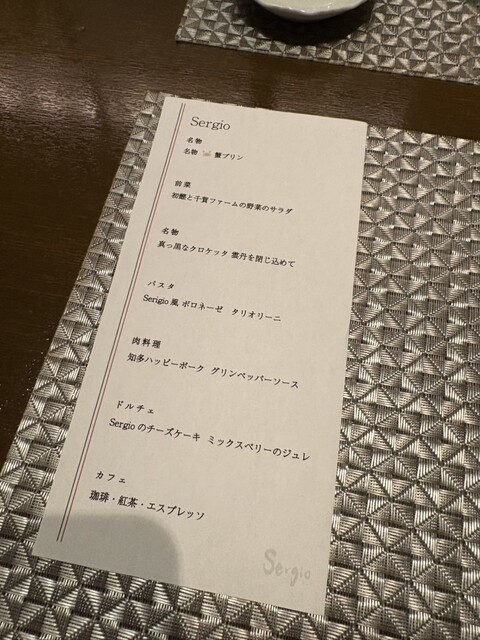 Sergio
名物
名物 🦀 蟹プリン
前菜
初鰹と千賀ファームの野菜のサラダ
名物
真っ黒なクロケッタ 雲丹を閉じ込めて
パスタ
Serigio風 ボロネーゼ タリオリーニ
肉料理
知多ハッピーポーク グリンペッパーソース
ドルチェ
Sergioのチーズケーキ ミックスベリーのジュレ
カフェ
珈琲・紅茶・エスプレッソ
Sergio